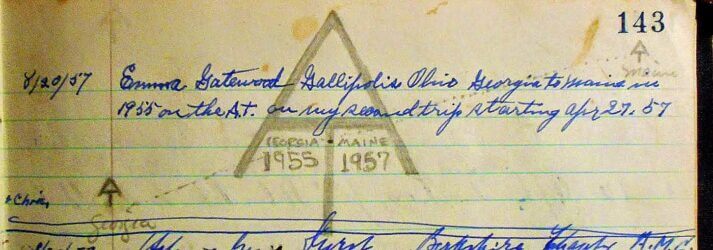 143
8/20/57 Emma Gatewood Gallipolis Ohio Georgia to Maine in
Maine
1955 on the A.T. on my second trip starting Apr 27. 57
GEORGIA - MAINE
1955 1957
Georgia
Guest Berkshire Chapter A.M.C.